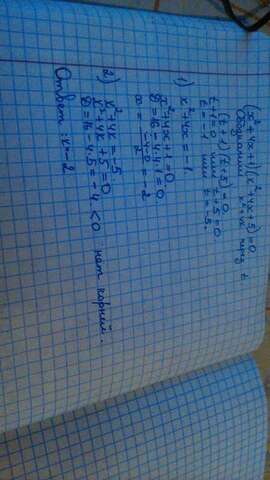 (x²+4x+1)(x²+4x+5)=0
Обозначим x²+4x через t.
(t+1)(t+5)=0
t+1=0 или t+5=0
t=-1 или t=-5.
1) x²+4x=-1
x²+4x+1=0
D=16-4·1=0
x=\frac{-4-0}{2}=-2
2) x²+4x=-5
x²+4x+5=0
D=16-4·5=-4<0 нет корней.
Ответ: x=-2